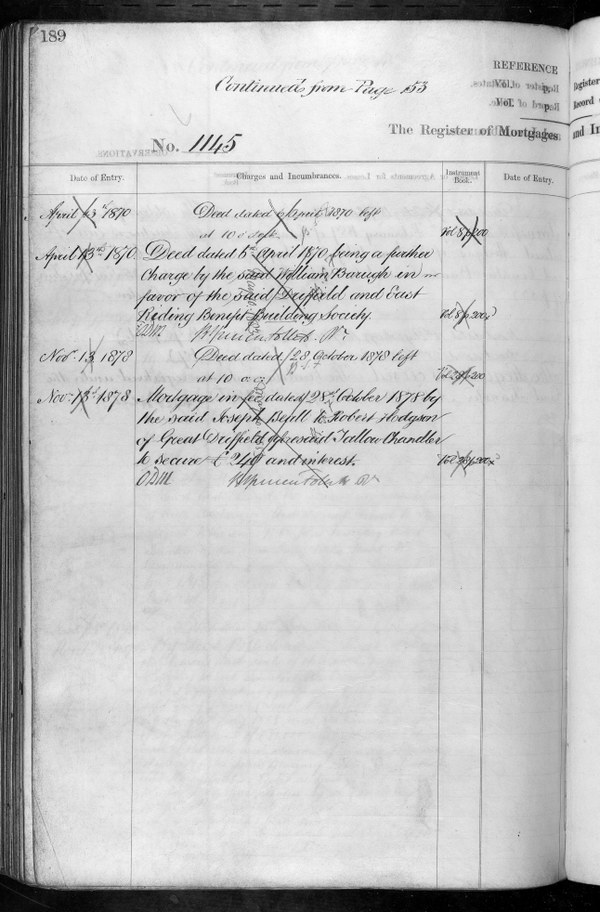 189
REFERENCE
Continued from Page 153
Vol. p.
Vol. p.
The Register of Mortgages
and In
Register
Record o
No. 1145
Date of Entry.
Charges and Incumbrances.
Instrument Book.
Date of Entry.
April 13th 1870
Deed dated April 1870 left
at 10 o'clock
Vol 8 p 200
April 13th 1870.
Deed dated 5th April 1870 being a further
Charge by the said William Barugh in
favor of the said Driffield and East
Riding Benefit Building Society.
Vol 8 p 200
O.D.M.
Novr. 13 1878
Deed dated 28 October 1878 left
at 10
Vol 28 p 200
Novr. 13th 1878
Mortgage in fee dated 28th October 1878 by
the said Joseph Beall to Robert Hodgson
of Great Driffield aforesaid Tallow Chandler
to secure £240 and interest.
Vol 28 p 200
O.D.M.